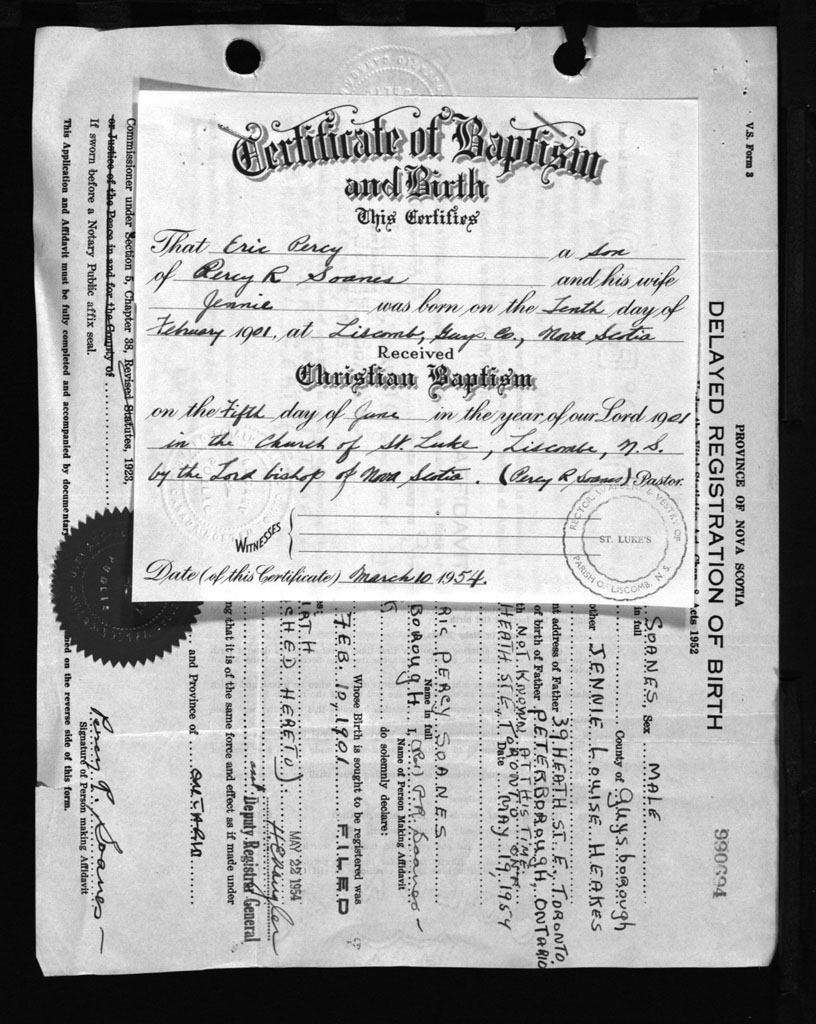 Certificate of Baptism
and Birth
This Certifies
That Eric Percy a son
of Percy R Soanes and his wife
Jennie was born on the Tenth day of
February 1901, at Liscomb, Guys. Co., Nova Scotia
Received
Christian Baptism
on the Fifth day of June in the year of our Lord 1901
in the Church of St. Luke, Liscombe, N.S.
by the Lord bishop of Nova Scotia. (Percy R Soanes) Pastor.
WITNESSES
RECTOR, & VESTRY OF
ST. LUKE'S
PARISH OF LISCOMB, N.S.
Date (of this Certificate) March 10 1954.
V.S. Form 3
PROVINCE OF NOVA SCOTIA
DELAYED REGISTRATION OF BIRTH
990694
Acts 1952
SOANES, Sex MALE
in full
County of Guysborough
other JENNIE LOUISE HEAKES
nt address of Father 39 HEATH ST. E., TORONTO
of birth of Father PETERBOROUGH, ONTARIO
th NOT KNOWN AT THIS TIME
HEATH ST. E., TORONTO ONT.
Date MAY 19, 1954
RIC PERCY SOANES
Name in full
BOROUGH I, (Rev) P.R. Soanes
Name of Person Making Affidavit
do solemnly declare:
Whose Birth is sought to be registered was
FEB. 10, 1901 FILED
IRTH
MAY 22 1954
CHED HERETO).
Deputy Registrar General
ng that it is of the same force and effect as if made under
and Province of ONTARIO
Percy R. Soanes
Signature of Person making Affidavit
Commissioner under Section 5, Chapter 38, Revised Statutes, 1923,
or Justice of the Peace in and for the County of
If sworn before a Notary Public affix seal.
This Application and Affidavit must be fully completed and accompanied by documentary
ned on the reverse side of this form.